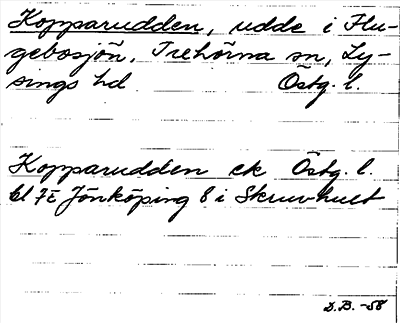 Kopparudden, udde i Flu-
gebosjön, Trehörna sn, Ly-
sings hd Östg. l.
Kopparudden ek Östg. l.
bl 7E Jönköping 8 i Skruvhult
D.B. -58